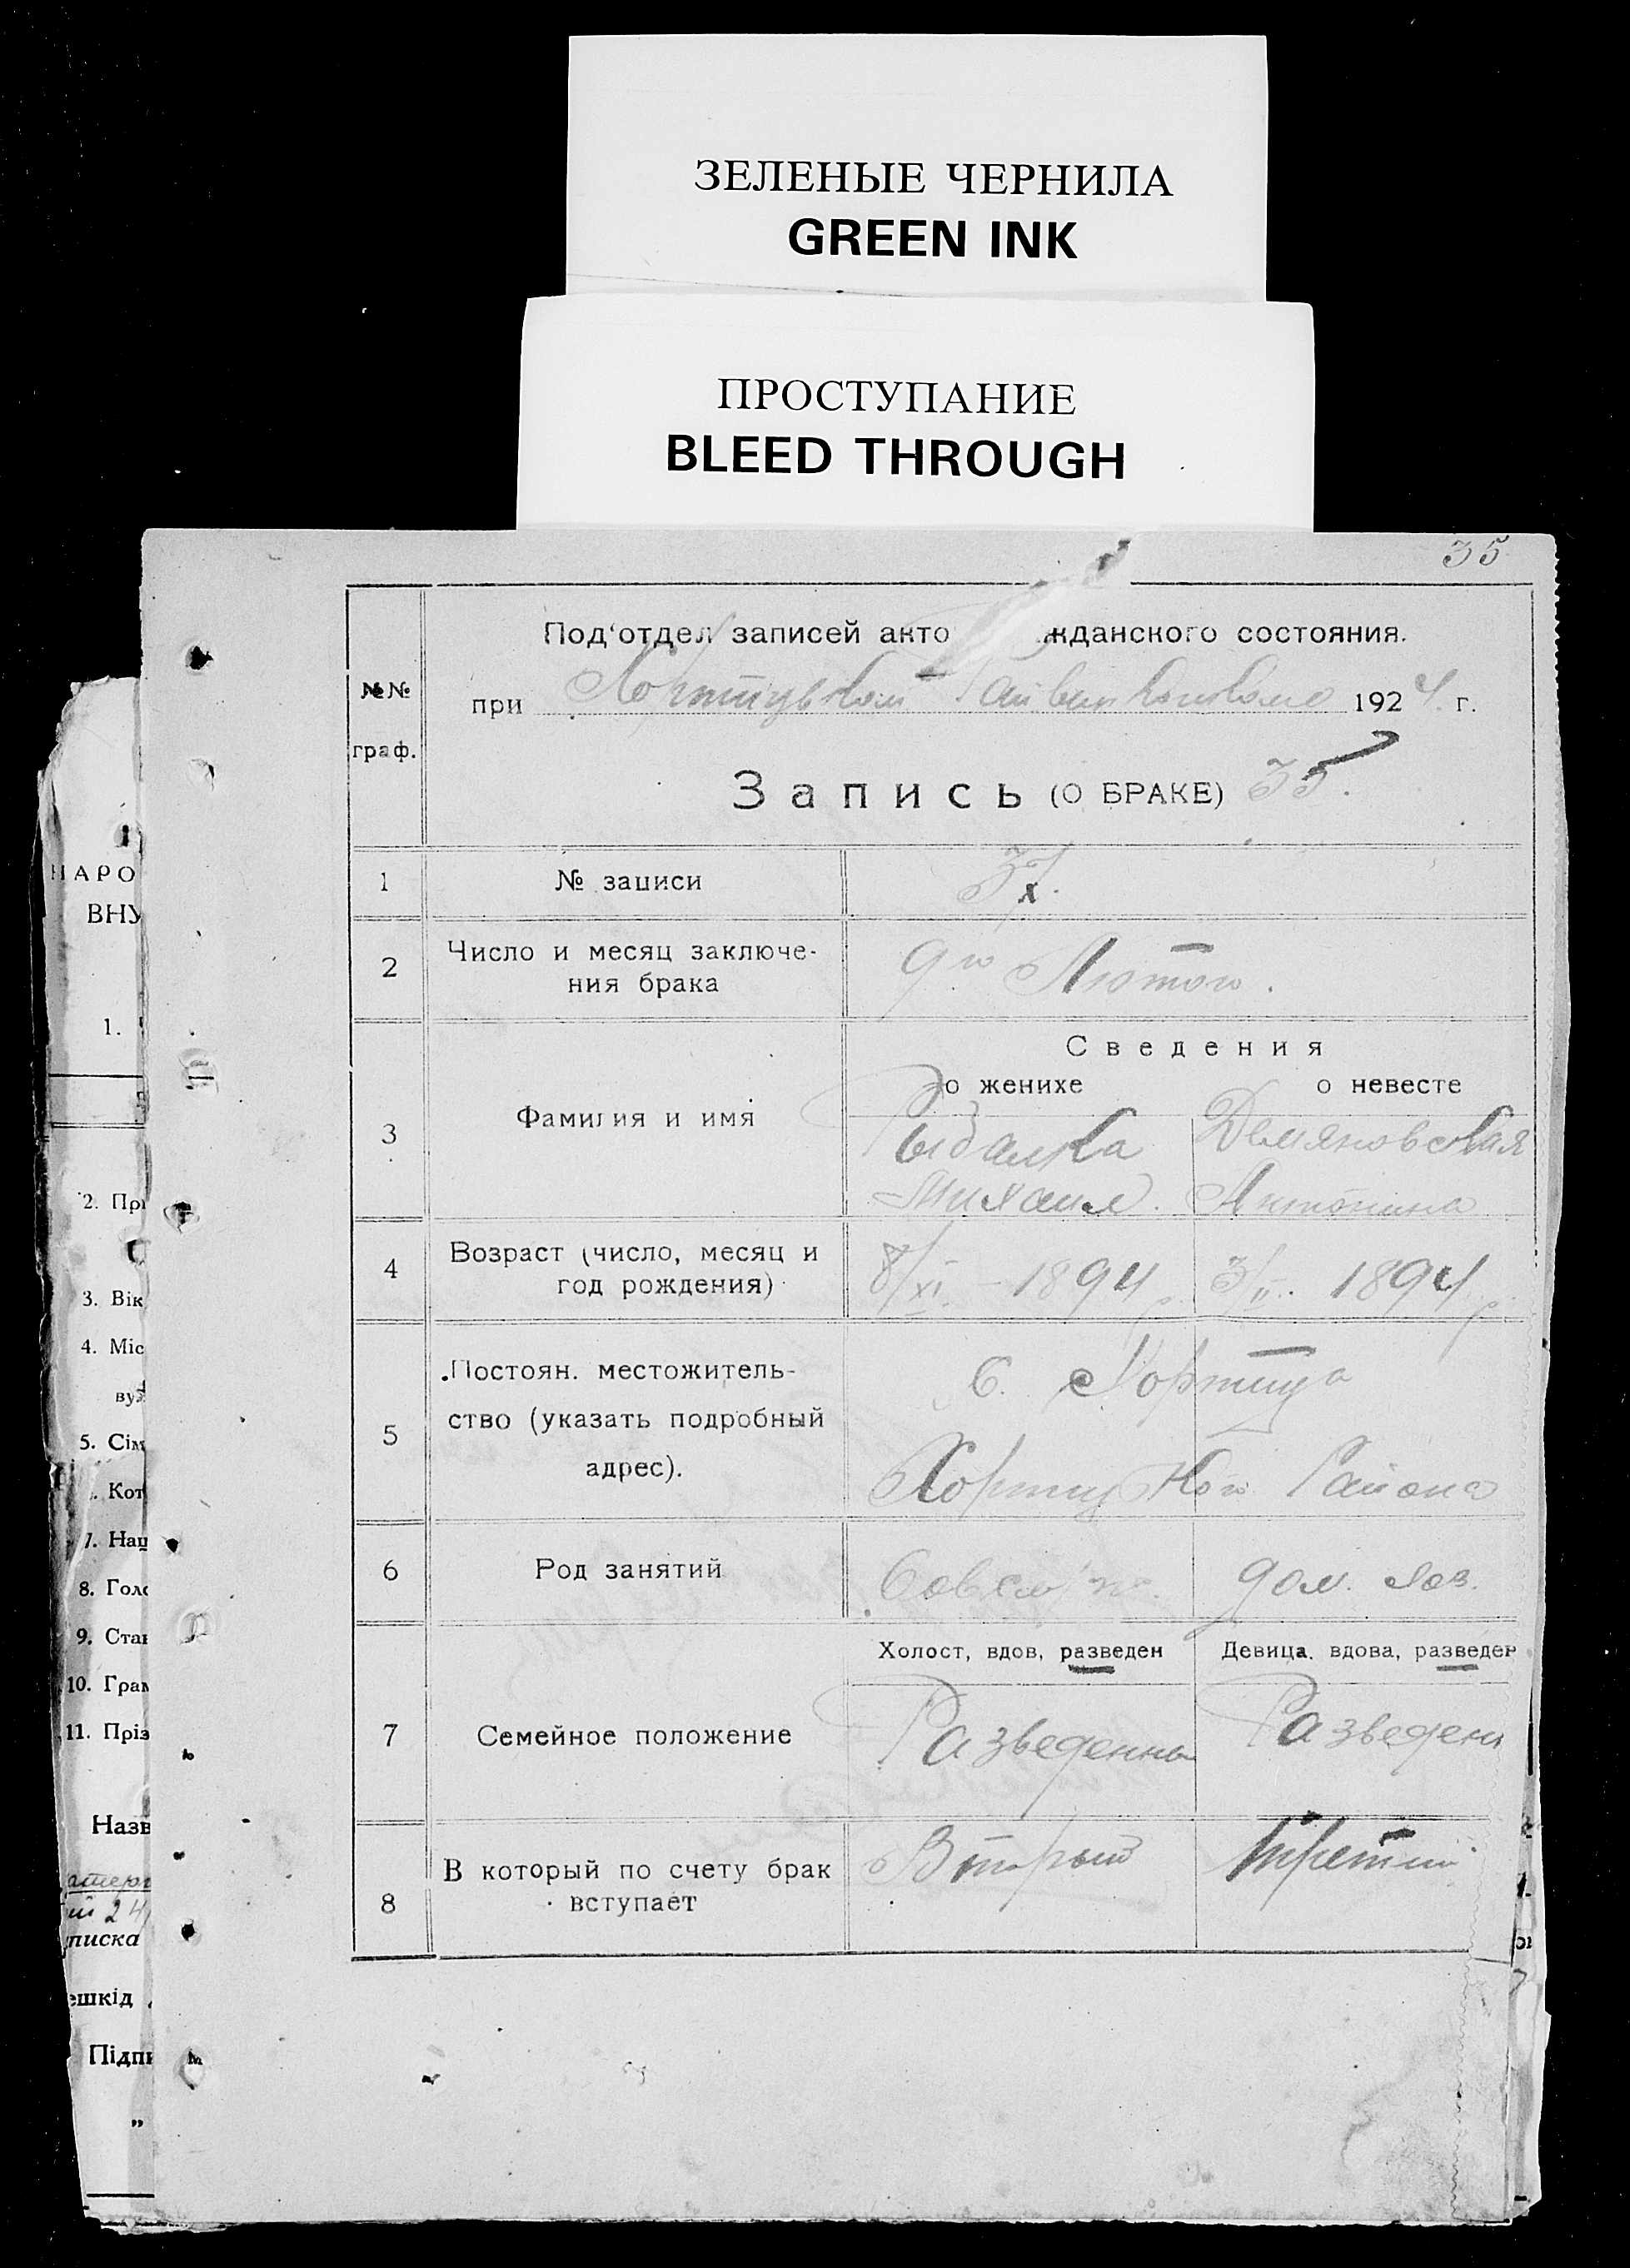 ЗЕЛЕНЫЕ ЧЕРНИЛА
GREEN INK
ПРОСТУПАНИЕ
BLEED THROUGH
35
№№
граф.
Под'отдел записей акто жданского состояния.
при Хортицьком Райвиконкоме 1924 г.
Запись (О БРАКЕ) 35.
1 № записи
2 Число и месяц заключе-
ния брака
9го Лютого.
Сведения
о женихе о невесте
3 Фамилия и имя
Рыбалка Демяновская
Михаил. Антонина
4 Возраст (число, месяц и
год рождения)
8/XI - 1894 р. 3/II. 1894 р.
5 Постоян. местожитель-
ство (указать подробный
адрес).
С. Хортица
Хортицкого Района
6 Род занятий
Совслуж. дом. хоз.
Холост, вдов, разведен Девица, вдова, разведен
7 Семейное положение
Разведенны Разведен
8 В который по счету брак
вступает
Вторый третий
НАРО
ВНУ
1.
2. Пр
3. Вік
4. Міс
ву
5. Сім
Кот
7. Нац
8. Голо
9. Ста
10. Грам
11. Пріз
Назв
24
писка
ешкід
Підпи
„